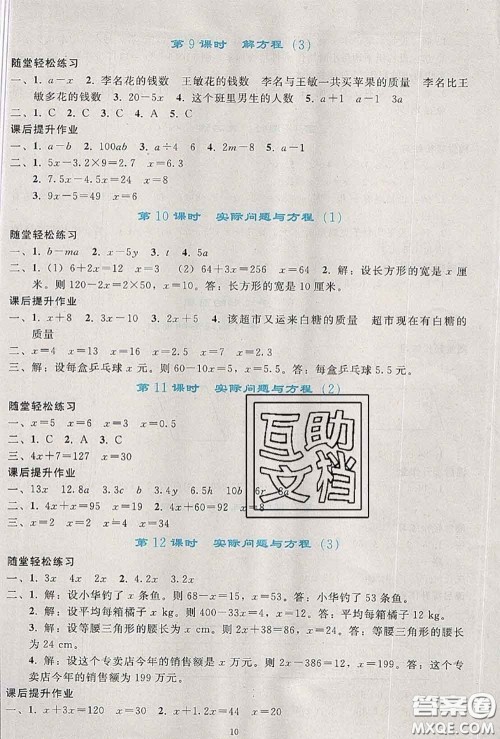 第9课时 解方程(3)
随堂轻松练习
一、1. a－x 2. 李名花的钱数 王敏花的钱数 李名与王敏一共买苹果的质量 李名比王
敏多花的钱数 3. 20－5x 4. 这个班里男生的人数 5. a＋1 a－1 3a
二、1. C 2. C 3. C 4. A 5. C
课后提升作业
一、1. a－b 2. 100ab 3. a÷4 6. 2m－8 5. a－1
二、1. 5x－3.2×9＝2.6 x＝6.28
2. 7.5x－4.5x＝24 x＝8
3. 9x－5＝49 x＝6
第10课时 实际问题与方程(1)
随堂轻松练习
一、1. b－ma 2. x－5y 3. t 4. 5a
二、1. (1) 6＋2x＝12 x＝3 (2) 64＋6x＝100 x＝6 2. 解：设长方形的宽是 x 厘
米。则 120－2x＝2×50，x＝10。答：长方形的宽是 10 厘米。
课后提升作业
一、1. x＋8 2. x－30 3. 2x＋3 4. 该超市又运来白糖的质量 超市现在有白糖的质量
二、x＝4 x＝13 x＝40
三、解：设每盒乒乓球 x 元。则 60－10x＝5，x＝5.5。答：每盒乒乓球 5.5 元。
第11课时 实际问题与方程(2)
随堂轻松练习
一、x＝5 x＝6 x＝0
二、1. B 2. A 3. C
三、4x＋7＝127 x＝30
课后提升作业
一、13x 12.8a 3.3c 3.4y 6.5h 10b
二、1. 2x＋4x＝30 x＝5 2. 4x＋2x＝60
三、x＋2x＝81 x＝27
第12课时 实际问题与方程(3)
随堂轻松练习
一、1. 3x 4x 2x 2. 4.2x 3.2x
二、1. 解：设小华钓了 x 条鱼。则 68－x＝15，x＝53。答：小华钓了 53 条鱼。
2. 解：设平均每箱橘子 x kg。则 400－10x＝280，x＝12。答：平均每箱橘子 12 kg。
3. 解：设等腰三角形的腰长为 x cm。则 2x＋38＝86，x＝24。答：这个等腰三角形的腰长为
24 cm。
4. 解：设这个专卖店今年的销售额是 x 万元。则 2x－386＝12，x＝199。答：这个专卖店
今年的销售额为 199 万元。
课后提升作业
一、1. x＋3x＝120 x＝30 2. 1.2x＋x＝44 x＝20
10
互助
文档
答案圈
MXQE.COM